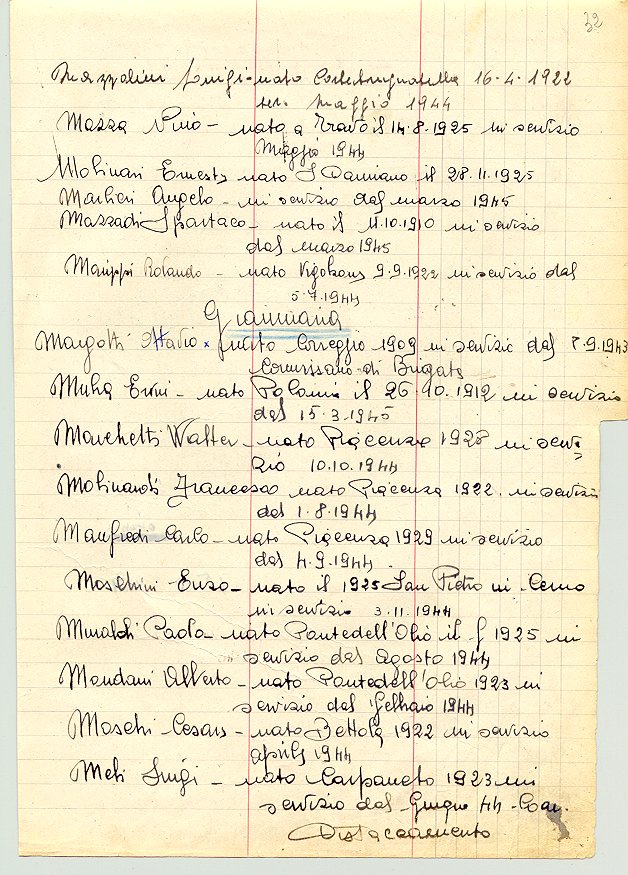 32
Mazzolini Luigi - nato Cortebrugnatella 16-4-1922
ser. Maggio 1944
Mazza Pino - nato a Travo il 14.8.1925 in servizio
Maggio 1944
Molinari Ernesto nato S Damiano il 28.11.1925
Marlieri Angelo - in servizio dal marzo 1945
Mazzadi Spartaco - nato il 11.10.1910 in servizio
dal marzo 1945
Rolando - nato 9.9.1922 in servizio dal
5.7.1944
Gianmaria
Margotti Ottavio x nato Correggio 1909 in servizio dal 8.9.1943
Commissario di Brigata
Muha - nato Polonia il 26.10.1912 in servizio
dal 15.3.1945
Marchetti Walter - nato Piacenza 1928 in servi
zio 10.10.1944
Molinardi Francesco nato Piacenza 1922 in servizio
dal 1.8.1944
Manfredi Carlo - nato Piacenza 1929 in servizio
dal 4.9.1944
Moschini Enzo - nato il 1925 San Pietro in Cerro
in servizio 3.11.1944
Muraldi Paolo - nato Pontedell'Olio il 1925 in
servizio dal agosto 1944
Mondani Alberto - nato Pontedell'Olio 1923 in
servizio dal Gennaio 1944
Moschi Cesare - nato Bettola 1922 in servizio
aprile 1944
Meli Luigi - nato Carpaneto 1923 in
servizio dal Giugno 44 - Com.
Distaccamento